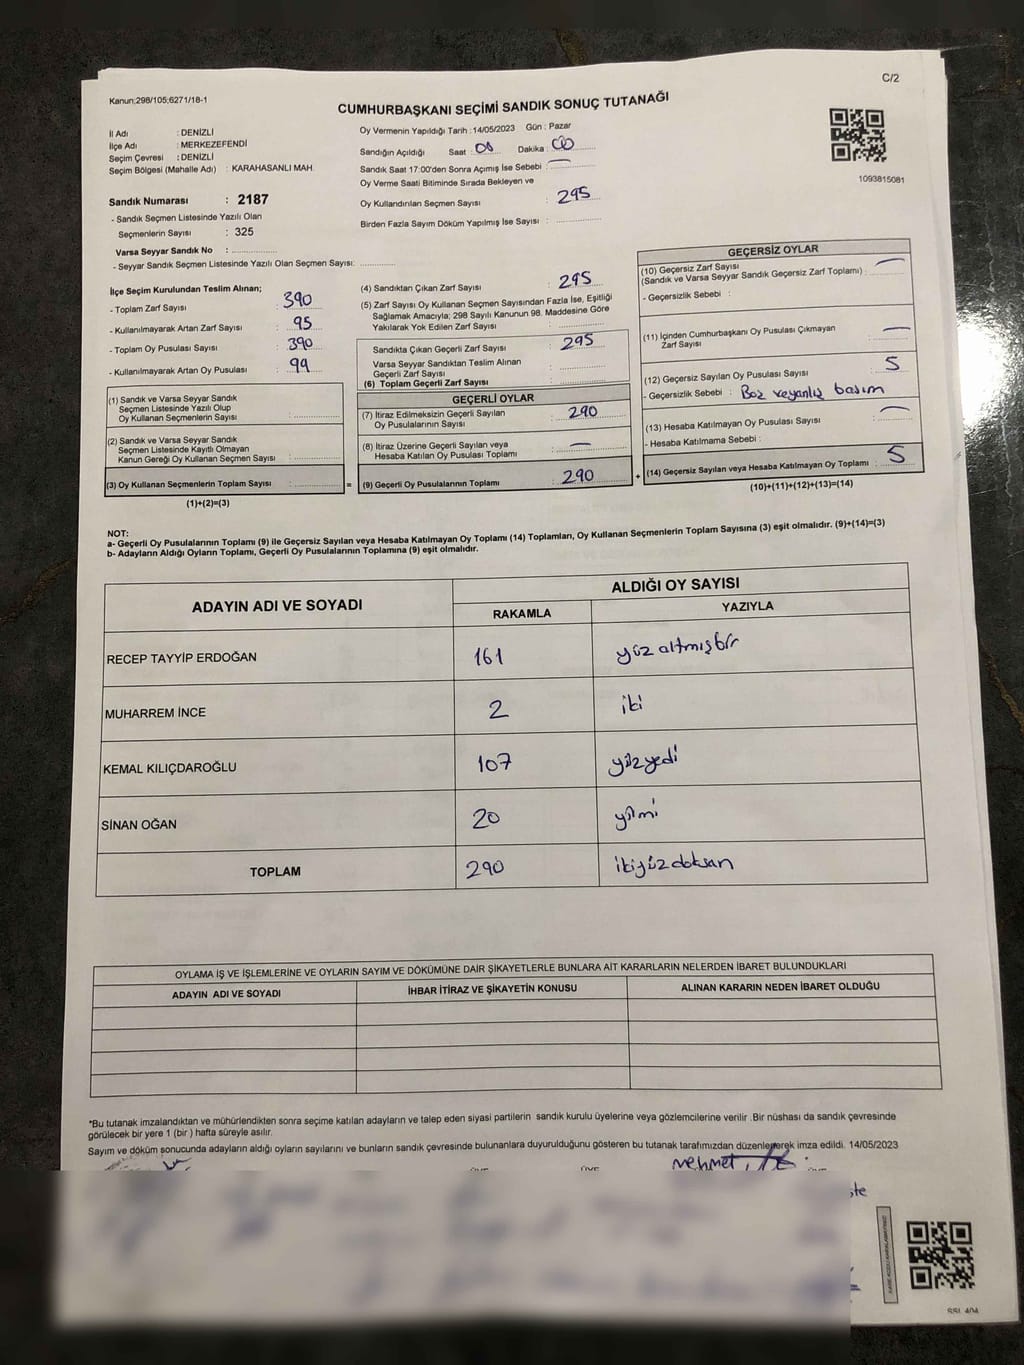 C/2
Kanun;298/105;6271/18-1
CUMHURBAŞKANI SEÇİMİ SANDIK SONUÇ TUTANAĞI
İl Adı : DENİZLİ
İlçe Adı : MERKEZEFENDİ
Seçim Çevresi : DENİZLİ
Seçim Bölgesi (Mahalle Adı) : KARAHASANLI MAH.
Sandık Numarası : 2187
- Sandık Seçmen Listesinde Yazılı Olan
Seçmenlerin Sayısı : 325
Varsa Seyyar Sandık No :
- Seyyar Sandık Seçmen Listesinde Yazılı Olan Seçmen Sayısı:
Oy Vermenin Yapıldığı Tarih :14/05/2023 Gün : Pazar
Sandığın Açıldığı Saat : 08 Dakika : 00
Sandık Saat 17:00'den Sonra Açımış İse Sebebi :
Oy Verme Saati Bitiminde Sırada Bekleyen ve
Oy Kullandırılan Seçmen Sayısı : 295
Birden Fazla Sayım Döküm Yapılmış İse Sayısı :
1093815081
İlçe Seçim Kurulundan Teslim Alınan;
- Toplam Zarf Sayısı : 390
- Kullanılmayarak Artan Zarf Sayısı : 95
- Toplam Oy Pusulası Sayısı : 390
- Kullanılmayarak Artan Oy Pusulası : 99
(1) Sandık ve Varsa Seyyar Sandık
Seçmen Listesinde Yazılı Olup
Oy Kullanan Seçmenlerin Sayısı :
(2) Sandık ve Varsa Seyyar Sandık
Seçmen Listesinde Kayıtlı Olmayan
Kanun Gereği Oy Kullanan Seçmen Sayısı :
(3) Oy Kullanan Seçmenlerin Toplam Sayısı : =
(1)+(2)=(3)
(4) Sandıktan Çıkan Zarf Sayısı : 295
(5) Zarf Sayısı Oy Kullanan Seçmen Sayısından Fazla İse, Eşitliği
Sağlamak Amacıyla; 298 Sayılı Kanunun 98. Maddesine Göre
Yakılarak Yok Edilen Zarf Sayısı :
Sandıkta Çıkan Geçerli Zarf Sayısı : 295
Varsa Seyyar Sandıktan Teslim Alınan
Geçerli Zarf Sayısı :
(6) Toplam Geçerli Zarf Sayısı :
GEÇERLİ OYLAR
(7) İtiraz Edilmeksizin Geçerli Sayılan
Oy Pusulalarının Sayısı : 290
(8) İtiraz Üzerine Geçerli Sayılan veya
Hesaba Katılan Oy Pusulası Toplamı : —
(9) Geçerli Oy Pusulalarının Toplamı : 290 +
GEÇERSİZ OYLAR
(10) Geçersiz Zarf Sayısı
(Sandık ve Varsa Seyyar Sandık Geçersiz Zarf Toplamı) : —
- Geçersizlik Sebebi :
(11) İçinden Cumhurbaşkanı Oy Pusulası Çıkmayan
Zarf Sayısı : —
(12) Geçersiz Sayılan Oy Pusulası Sayısı : 5
- Geçersizlik Sebebi : Boz veyanlış basım
(13) Hesaba Katılmayan Oy Pusulası Sayısı : —
- Hesaba Katılmama Sebebi :
(14) Geçersiz Sayılan veya Hesaba Katılmayan Oy Toplamı : 5
(10)+(11)+(12)+(13)=(14)
NOT:
a- Geçerli Oy Pusulalarının Toplamı (9) ile Geçersiz Sayılan veya Hesaba Katılmayan Oy Toplamı (14) Toplamları, Oy Kullanan Seçmenlerin Toplam Sayısına (3) eşit olmalıdır. (9)+(14)=(3)
b- Adayların Aldığı Oyların Toplamı, Geçerli Oy Pusulalarının Toplamına (9) eşit olmalıdır.
ADAYIN ADI VE SOYADI ALDIĞI OY SAYISI
RAKAMLA YAZIYLA
RECEP TAYYİP ERDOĞAN 161 yüz altmışbir
MUHARREM İNCE 2 iki
KEMAL KILIÇDAROĞLU 107 yüzyedi
SİNAN OĞAN 20 yirmi
TOPLAM 290 ikiyüzdoksan
OYLAMA İŞ VE İŞLEMLERİNE VE OYLARIN SAYIM VE DÖKÜMÜNE DAİR ŞİKAYETLERLE BUNLARA AİT KARARLARIN NELERDEN İBARET BULUNDUKLARI
ADAYIN ADI VE SOYADI İHBAR İTİRAZ VE ŞİKAYETİN KONUSU ALINAN KARARIN NEDEN İBARET OLDUĞU
*Bu tutanak imzalandıktan ve mühürlendikten sonra seçime katılan adayların ve talep eden siyasi partilerin sandık kurulu üyelerine veya gözlemcilerine verilir .Bir nüshası da sandık çevresinde
görülecek bir yere 1 (bir ) hafta süreyle asılır.
Sayım ve döküm sonucunda adayların aldığı oyların sayılarını ve bunların sandık çevresinde bulunanlara duyurulduğunu gösteren bu tutanak tarafımızdan düzenlenerek imza edildi. 14/05/2023
mehmet